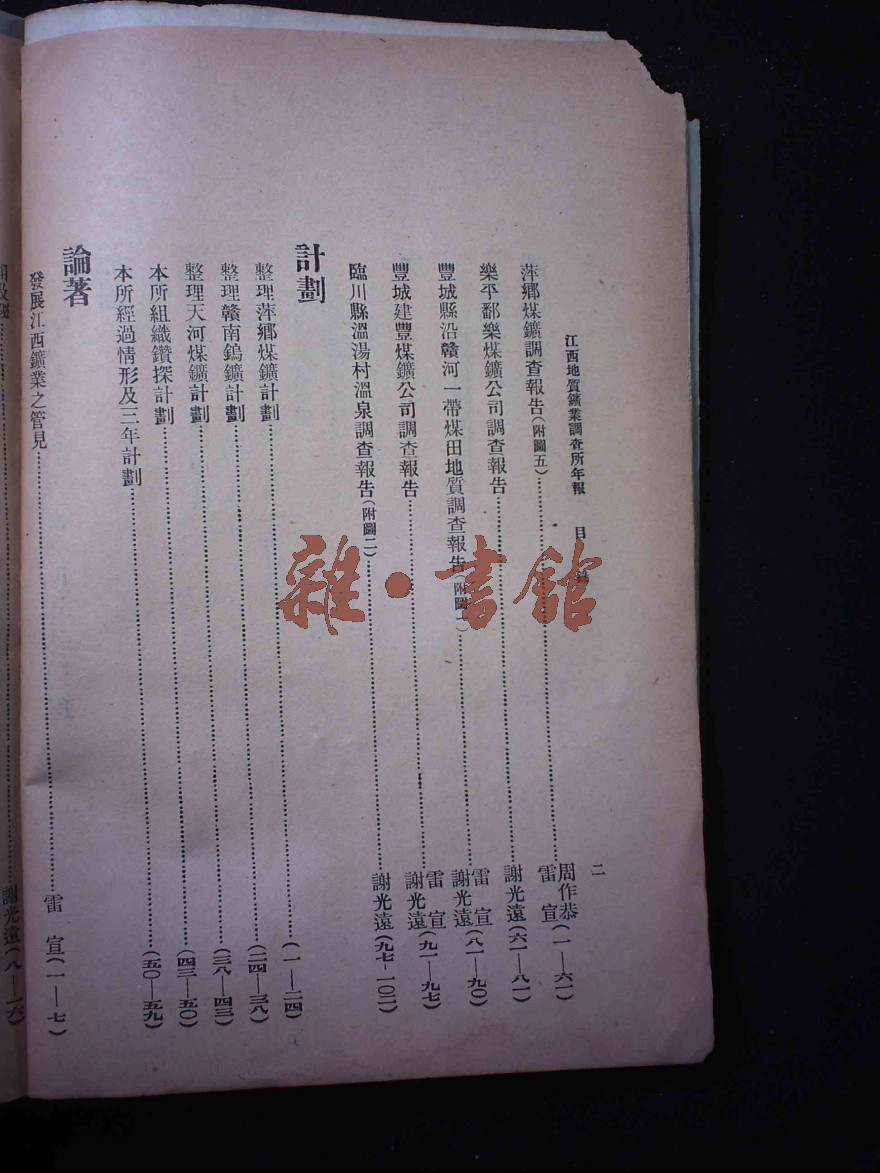 江西地質鑛業調查所年報 目 錄 二
萍鄉煤鑛調查報告(附圖五)…………周作恭 雷宣(一—六一)
樂平鄱樂煤鑛公司調查報告…………謝光遠(六一—八一)
豐城縣沿贛河一帶煤田地質調查報告(附圖一)…………雷宣 謝光遠(八一—九〇)
豐城建豐煤鑛公司調查報告…………雷宣 謝光遠(九一—九七)
臨川縣溫湯村溫泉調查報告(附圖二)…………謝光遠(九七-一〇二)
計劃
整理萍鄉煤鑛計劃…………(一—二四)
整理贛南鎢鑛計劃…………(二四—三八)
整理天河煤鑛計劃…………(三八—四三)
本所組織鑽探計劃…………(四三—五〇)
本所經過情形及三年計劃…………(五〇—五九)
論著
發展江西鑛業之管見…………雷宣(一—七)
…………謝光遠(八—一六)
雜·書館